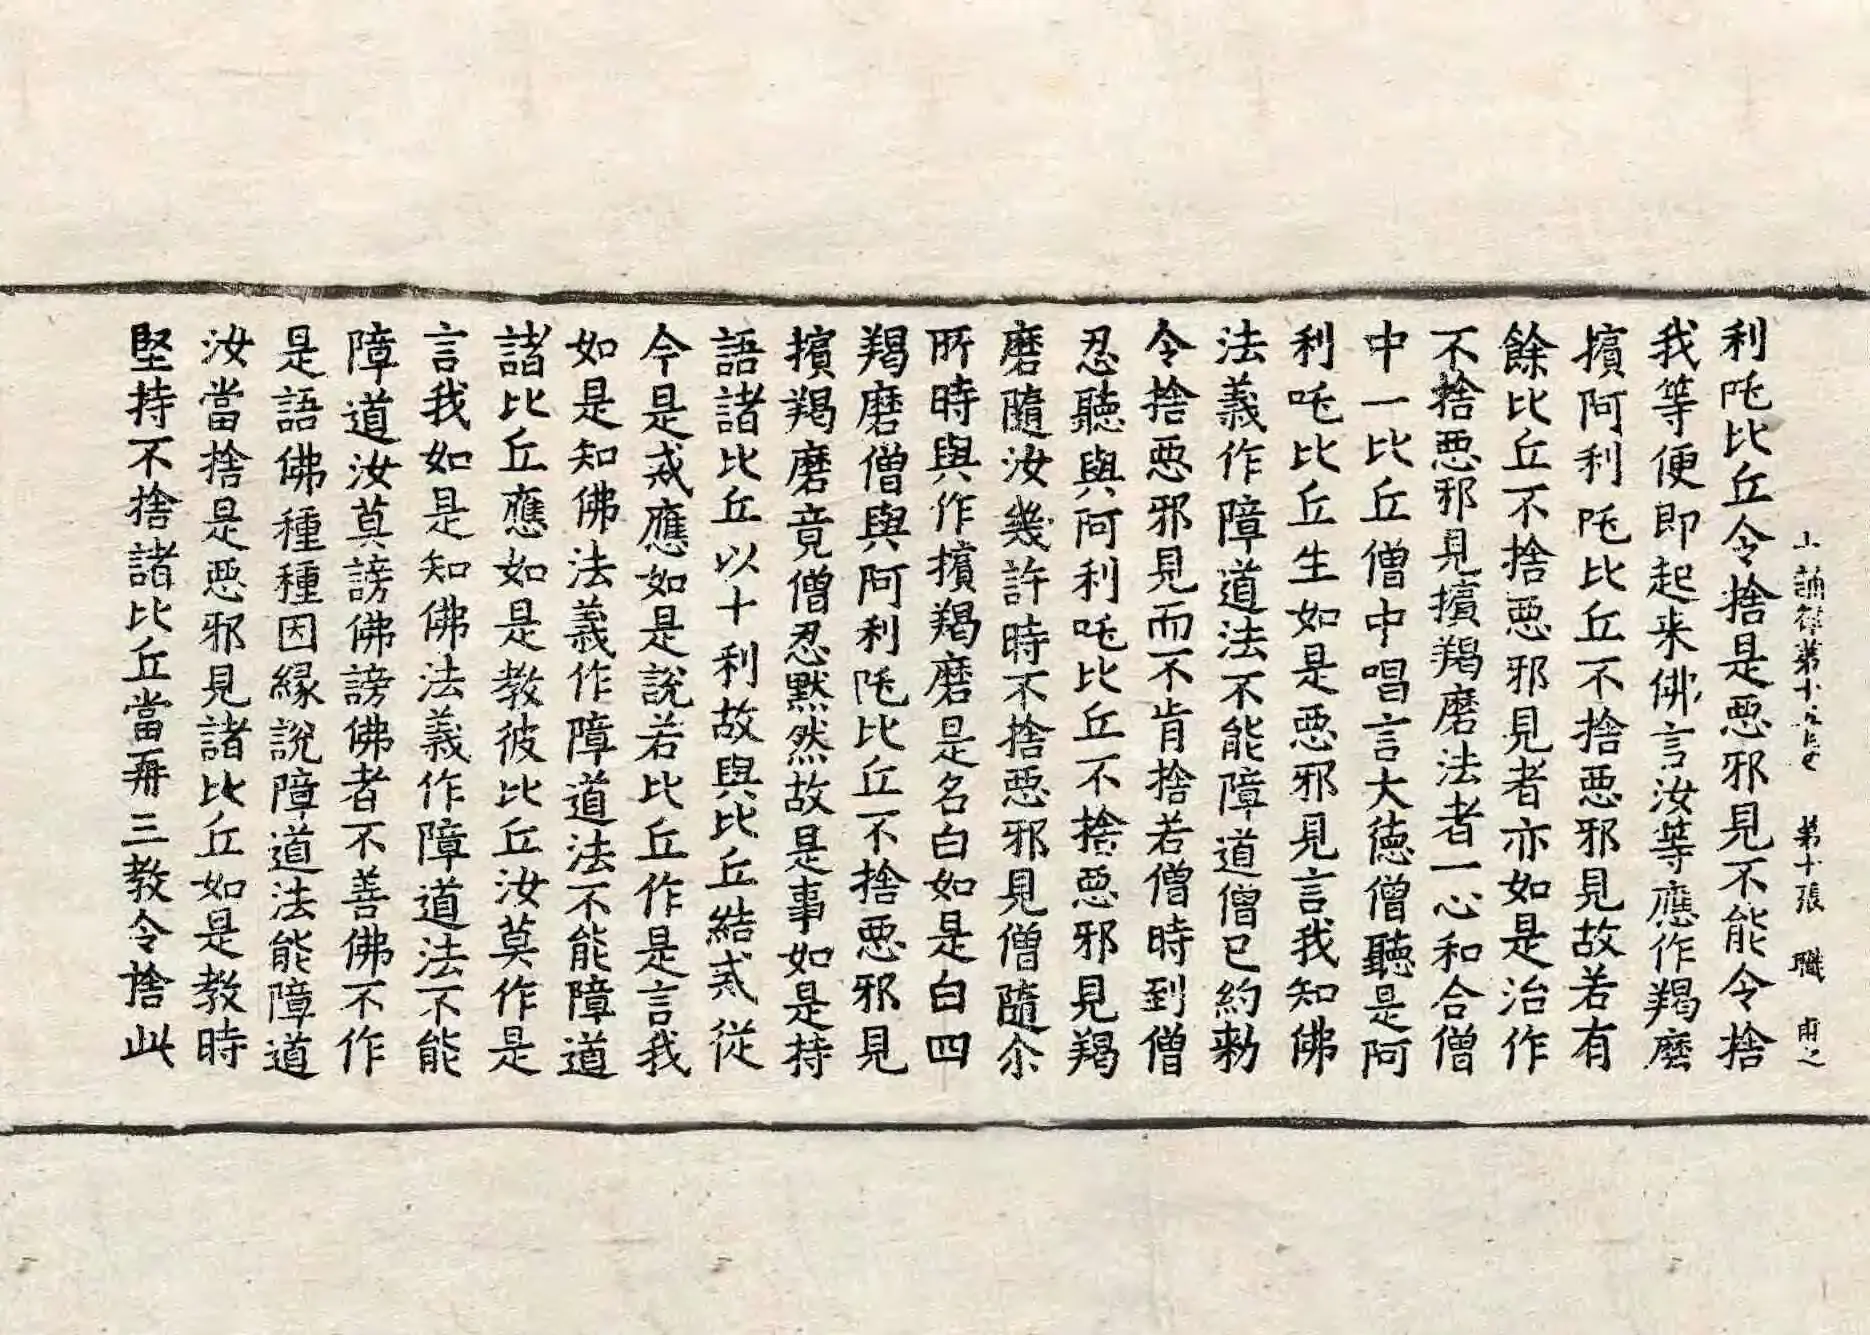 十誦律第十五 第十張 職 甫之
利吒比丘令捨是惡邪見不能令捨
我等便即起来佛言汝等應作羯磨
擯阿利吒比丘不捨惡邪見故若有
餘比丘不捨惡邪見者亦如是治作
不捨惡邪見擯羯磨法者一心和合僧
中一比丘僧中唱言大徳僧聽是阿
利吒比丘生如是惡邪見言我知佛
法義作障道法不能障道僧已約勑
令捨惡邪見而不肯捨若僧時到僧
忍聽與阿利吒比丘不捨惡邪見羯
磨隨汝幾許時不捨惡邪見僧隨尒
所時與作擯羯磨是名白如是白四
羯磨僧與阿利吒比丘不捨惡邪見
擯羯磨竟僧忍黙然故是事如是持
語諸比丘以十利故與比丘結戒從
今是戒應如是說若比丘作是言我
如是知佛法義作障道法不能障道
諸比丘應如是教彼比丘汝莫作是
言我如是知佛法義作障道法不能
障道汝莫謗佛謗佛者不善佛不作
是語佛種種因縁說障道法能障道
汝當捨是惡邪見諸比丘如是教時
堅持不捨諸比丘當再三教令捨此